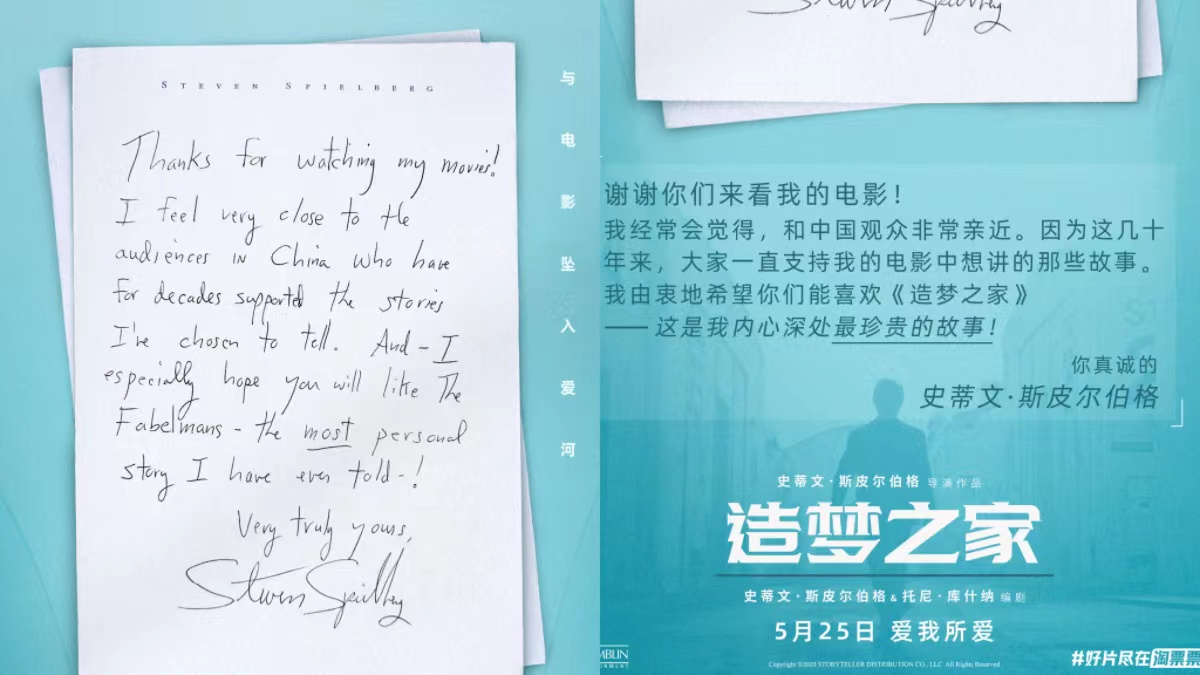 STEVEN SPIELBERG
Thanks for watching my movies!
I feel very close to the
audiences in China who have
for decades supported the stories
I've chosen to tell. And - I
especially hope you will like The
Fabelmans - the most personal
story I have ever told-!
Very truly yours,
Steven Spielberg
与电影坠入爱河
Steven Spielberg
谢谢你们来看我的电影！
我经常会觉得，和中国观众非常亲近。因为这几十
年来，大家一直支持我的电影中想讲的那些故事。
我由衷地希望你们能喜欢《造梦之家》
—— 这是我内心深处最珍贵的故事！
你真诚的
史蒂文·斯皮尔伯格
史蒂文·斯皮尔伯格 导演作品
造梦之家
史蒂文·斯皮尔伯格&托尼·库什纳 编剧
5月25日 爱我所爱
MBLIN
Copyright ©2022 STORYTELLER DISTRIBUTION CO., LLC All Rights Reserved
#好片尽在淘票票